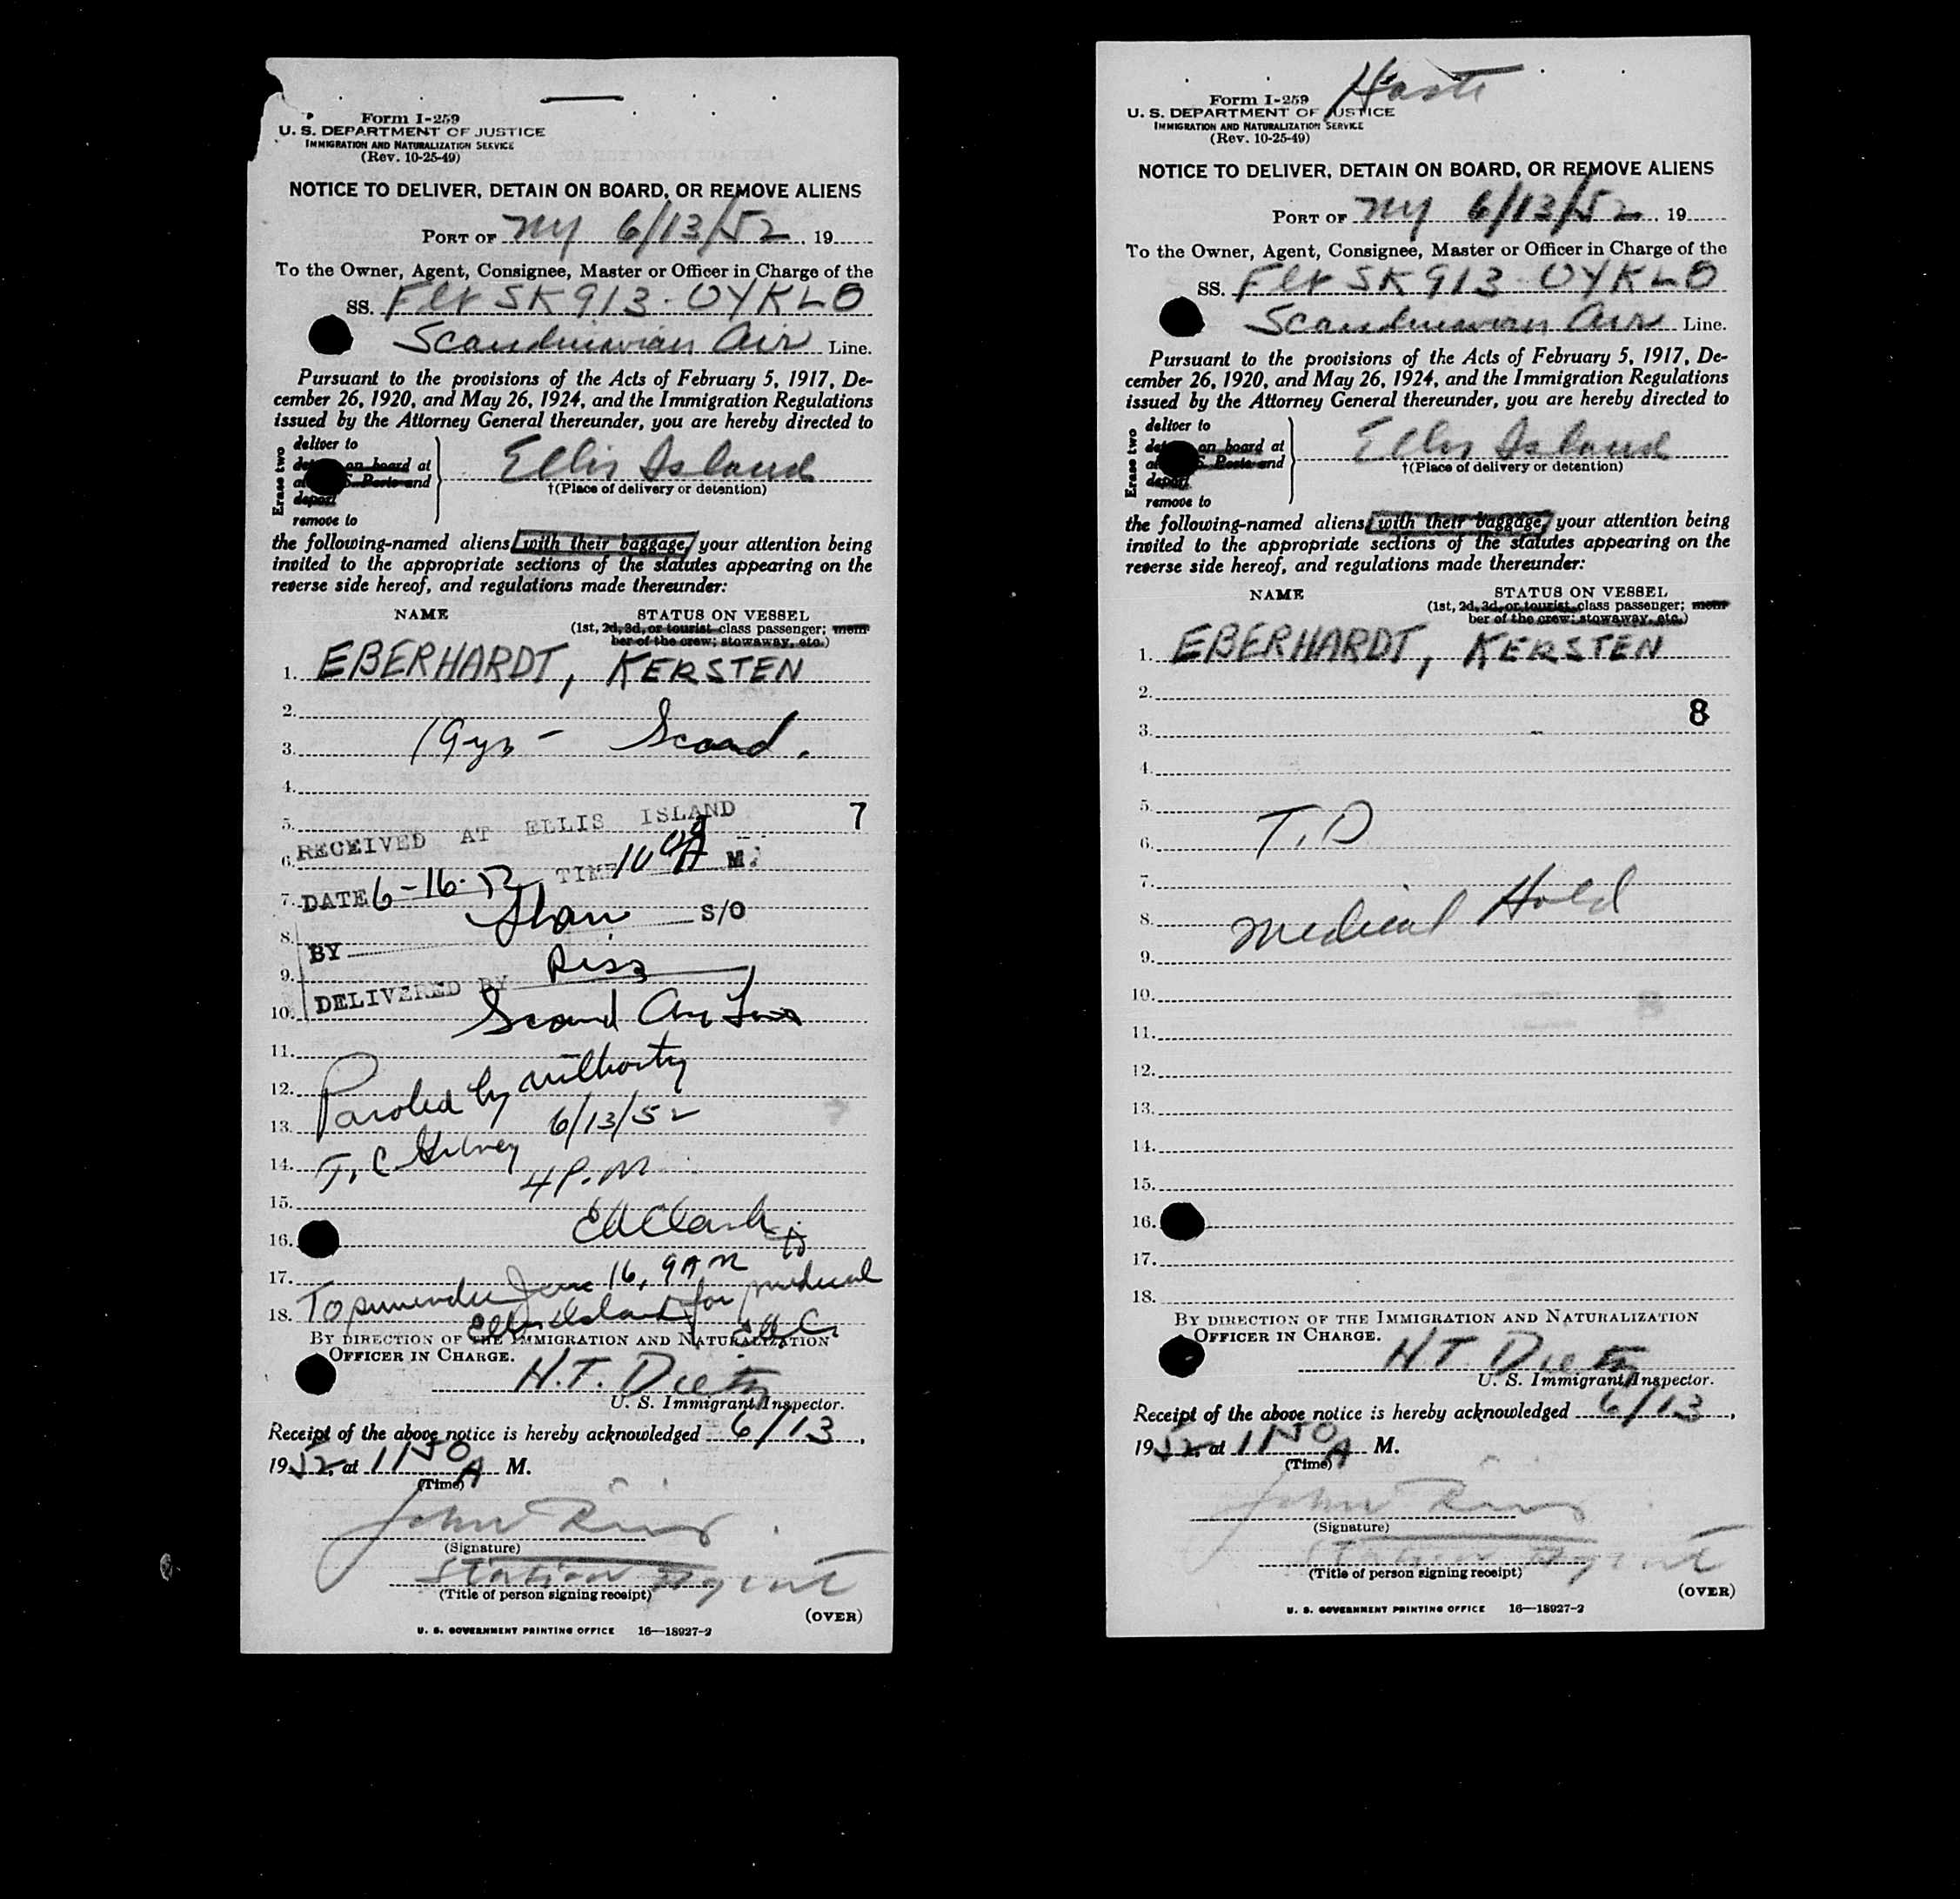 Form I-259
U. S. DEPARTMENT OF JUSTICE
IMMIGRATION AND NATURALIZATION SERVICE
(Rev. 10-25-49)
NOTICE TO DELIVER, DETAIN ON BOARD, OR REMOVE ALIENS
PORT OF NY 6/13/52, 19
To the Owner, Agent, Consignee, Master or Officer in Charge of the
SS. Flt SK 913 - OYKLO
Scandinavian Air Line.
Pursuant to the provisions of the Acts of February 5, 1917, De-
cember 26, 1920, and May 26, 1924, and the Immigration Regulations
issued by the Attorney General thereunder, you are hereby directed to
Erase two
deliver to
on board at
S. Posts and
deport
remove to
Ellis Island
†(Place of delivery or detention)
the following-named aliens, with their baggage, your attention being
invited to the appropriate sections of the statutes appearing on the
reverse side hereof, and regulations made thereunder:
NAME STATUS ON VESSEL
(1st, 2d, 3d, or tourist class passenger; mem-
ber of the crew; stowaway, etc.)
1. EBERHARDT, KERSTEN
2.
3. 19 yrs - Scand.
4.
5. 7
RECEIVED AT ELLIS ISLAND
6.
7. DATE 6-16-52 TIME 10 A M.
S/O
8. BY
9.
DELIVERED BY Riss
10. Scand Air Lines
11.
12. Paroled by authority
13. 6/13/52
14. T. C
4 P.M
15.
16. Ed Clark
17. June 16, 9 AM
18. To surrender Ellis Island for medical
EAC
BY DIRECTION OF THE IMMIGRATION AND NATURALIZATION
OFFICER IN CHARGE.
H.T. Dietz
U. S. Immigrant Inspector.
Receipt of the above notice is hereby acknowledged 6/13,
1952, at 1150 A M.
(Time)
John Riss
(Signature)
Station Agent
(Title of person signing receipt)
(OVER)
U. S. GOVERNMENT PRINTING OFFICE 16—18927-2
Form I-259
U. S. DEPARTMENT OF JUSTICE
IMMIGRATION AND NATURALIZATION SERVICE
(Rev. 10-25-49)
NOTICE TO DELIVER, DETAIN ON BOARD, OR REMOVE ALIENS
PORT OF NY 6/13/52, 19
To the Owner, Agent, Consignee, Master or Officer in Charge of the
SS. Flt SK 913 - OYKLO
Scandinavian Air Line.
Pursuant to the provisions of the Acts of February 5, 1917, De-
cember 26, 1920, and May 26, 1924, and the Immigration Regulations
issued by the Attorney General thereunder, you are hereby directed to
Erase two
deliver to
on board at
S. Posts and
deport
remove to
Ellis Island
†(Place of delivery or detention)
the following-named aliens, with their baggage, your attention being
invited to the appropriate sections of the statutes appearing on the
reverse side hereof, and regulations made thereunder:
NAME STATUS ON VESSEL
(1st, 2d, 3d, or tourist class passenger; mem-
ber of the crew; stowaway, etc.)
1. EBERHARDT, KERSTEN
2.
8
3.
4.
5.
6. T. D
7.
8. Medical Hold
9.
10.
11.
12.
13.
14.
15.
16.
17.
18.
BY DIRECTION OF THE IMMIGRATION AND NATURALIZATION
OFFICER IN CHARGE.
H.T. Dietz
U. S. Immigrant Inspector.
Receipt of the above notice is hereby acknowledged 6/13,
1952, at 1150 A M.
(Time)
John Riss
(Signature)
Station Agent
(Title of person signing receipt)
(OVER)
U. S. GOVERNMENT PRINTING OFFICE 16—18927-2